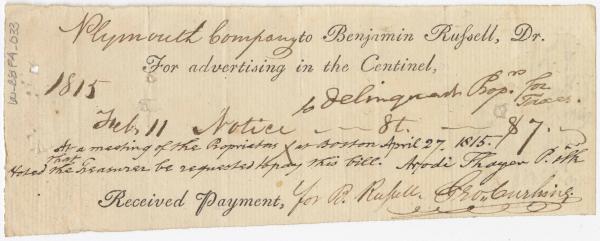 Plymouth Company to Benjamin Russell, Dr.
For advertising in the Centinel,
1815
to Delinquent Prop.rs for Taxes.
Feb. 11 Notice — 8t. — $7. —
At a meeting of the Proprietors in Boston April 27. 1815.
Voted that the Treasurer be requested to pay this bill. Arodi Thayer P. Clk
Received Payment, for B. Russell Geo. Cushing